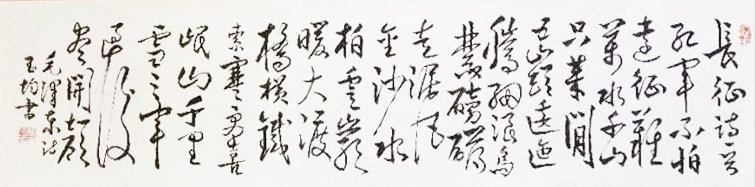 長征诗
红军不怕
遠征難
萬水千山
只等閒
五嶺逶迤
騰細浪烏
蒙磅礴
走泥丸
金沙水
拍雲崖
暖大渡
橋橫鐵
索寒更喜
岷山千里
雪三軍
過後
盡開顏
毛澤东诗
玉均书